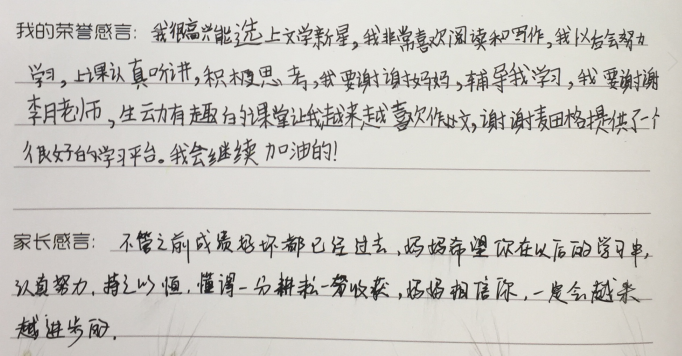 我的荣誉感言：我很高兴能选上文学新星，我非常喜欢阅读和写作，我以后会努力
学习，上课认真听讲，积极思考，我要谢谢妈妈，辅导我学习，我要谢谢
李月老师，生动有趣的课堂让我越来越喜欢作文，谢谢麦田格提供了一个
很好的学习平台。我会继续加油的！
家长感言：不管之前成绩好坏都已经过去，妈妈希望你在以后的学习中，
认真努力，持之以恒，懂得一分耕耘一份收获，妈妈相信你，一定会越来
越进步的．